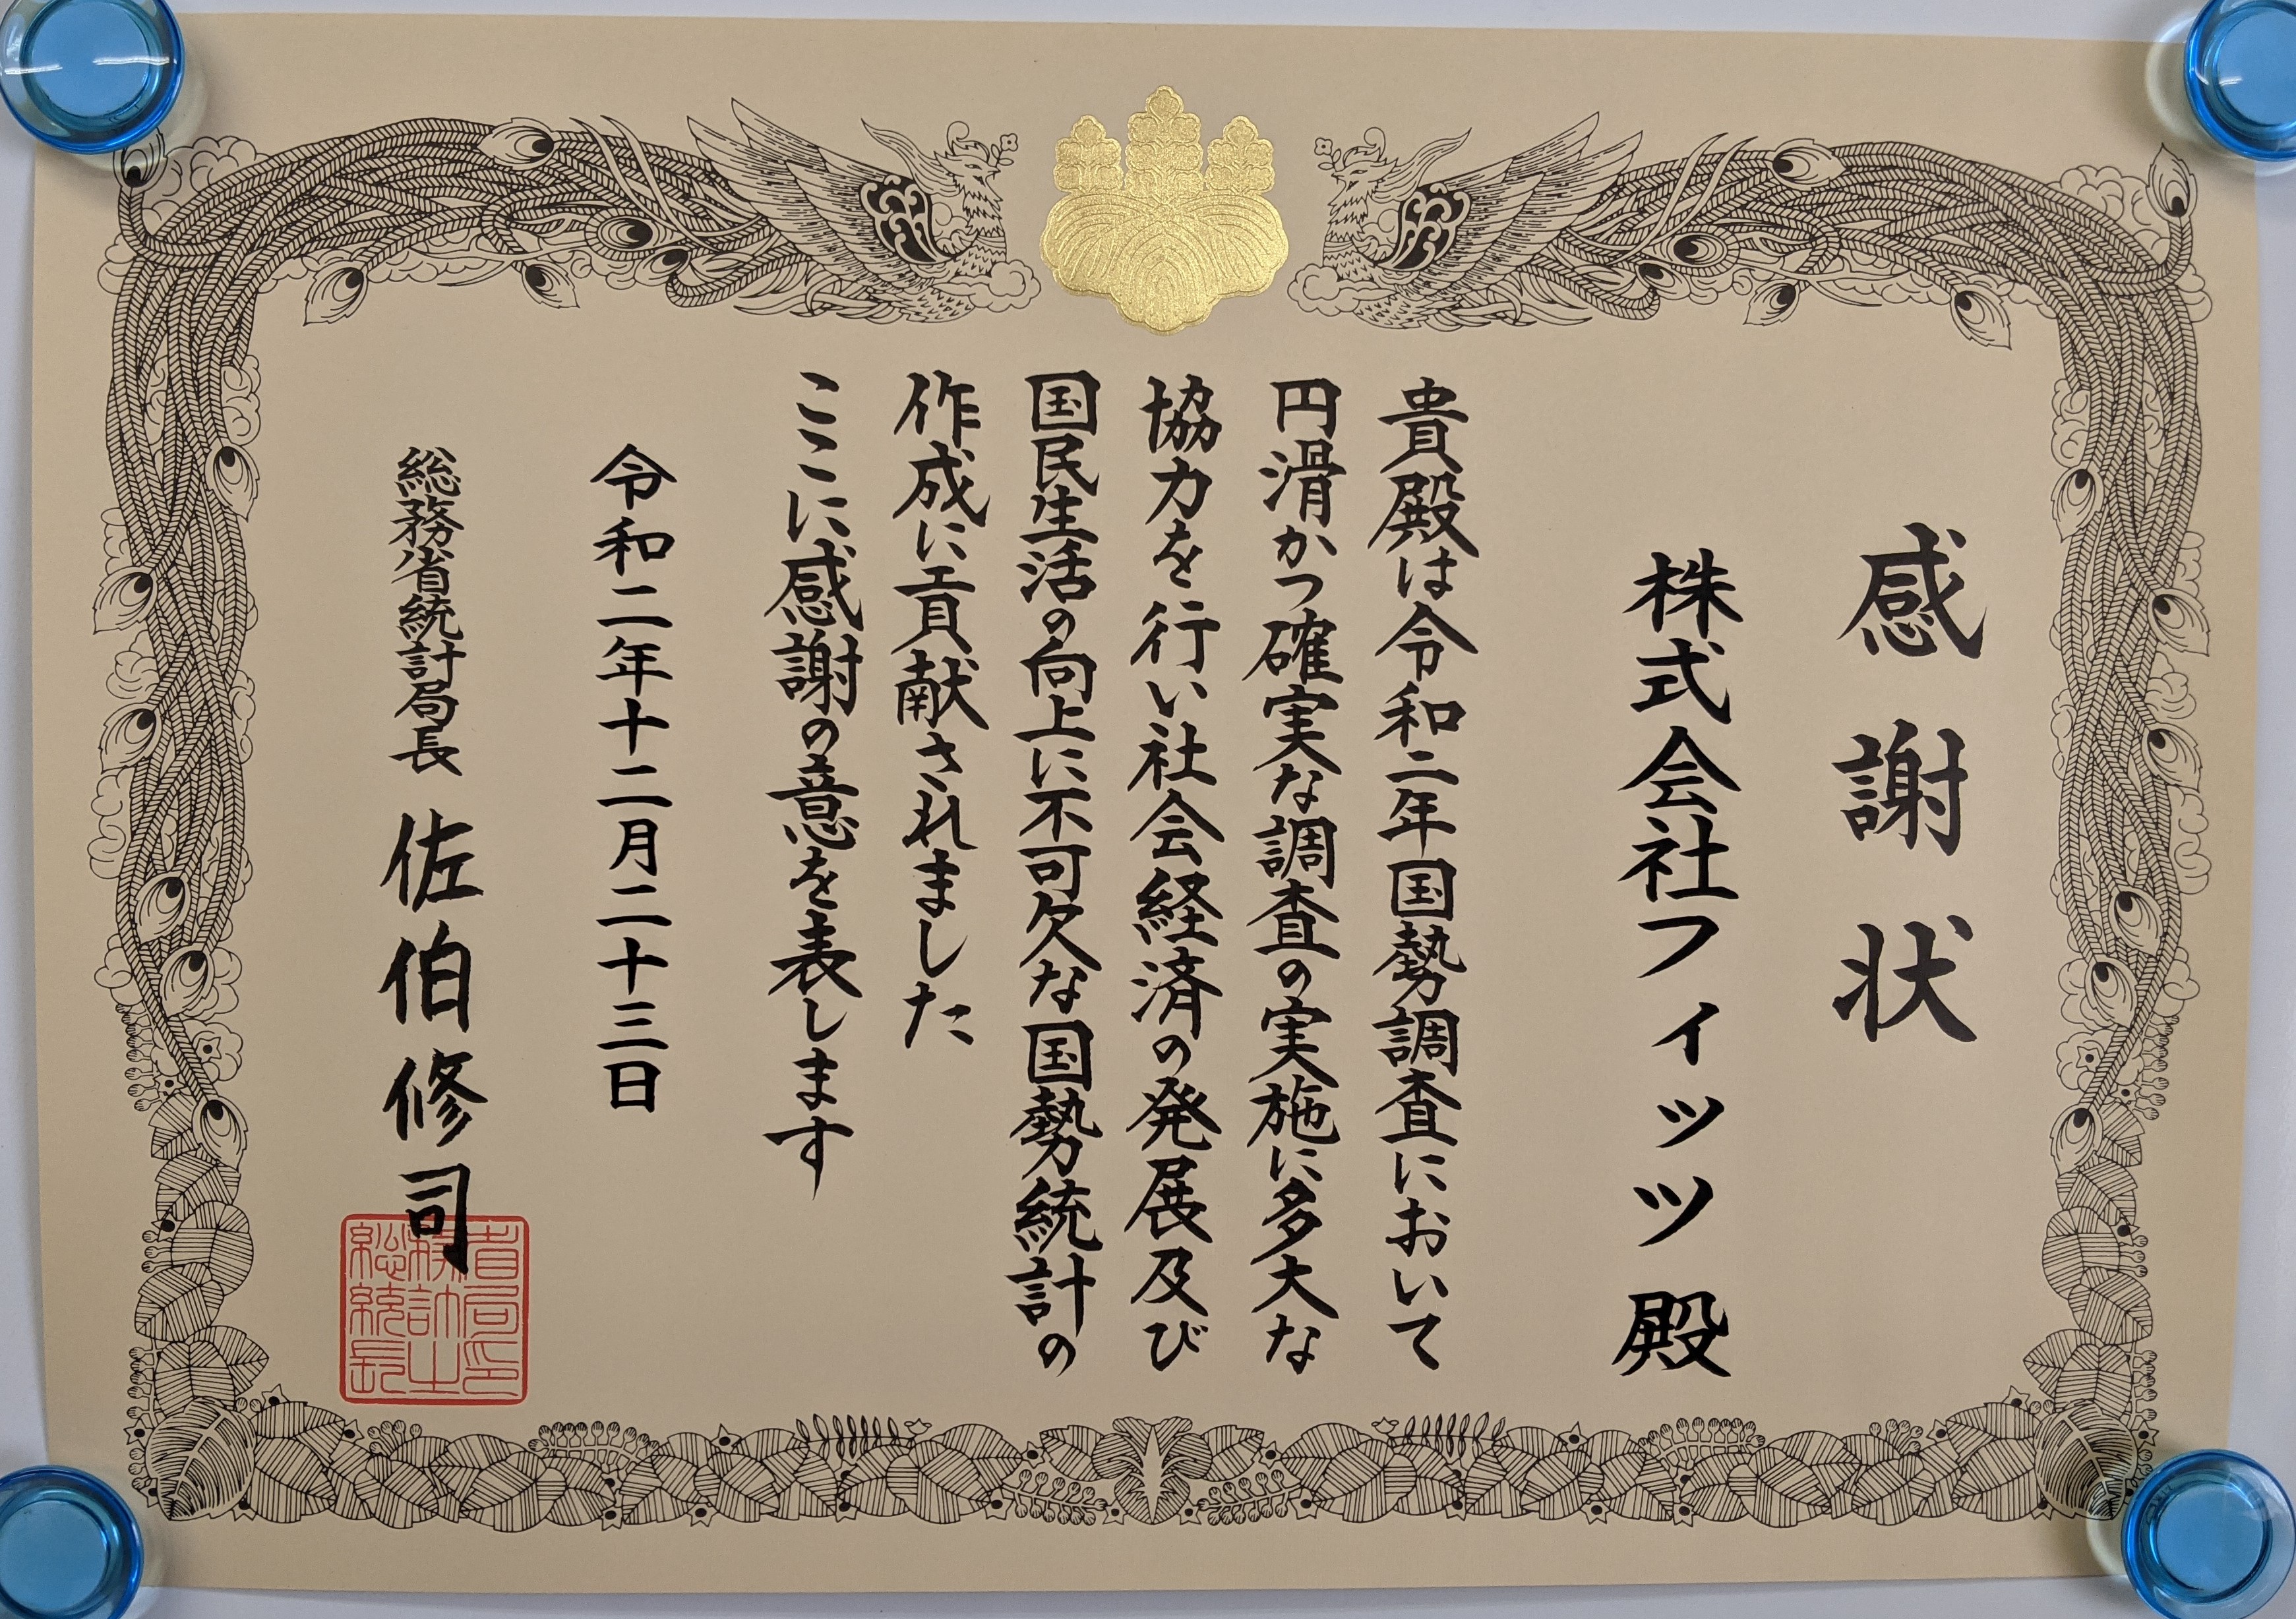 感謝状
株式会社フィッツ 殿
貴殿は令和二年国勢調査において
円滑かつ確実な調査の実施に多大な
協力を行い社会経済の発展及び
国民生活の向上に不可欠な国勢統計の
作成に貢献されました
ここに感謝の意を表します
令和二年十二月二十三日
総務省統計局長 佐伯修司
総務省
統計局
長之印